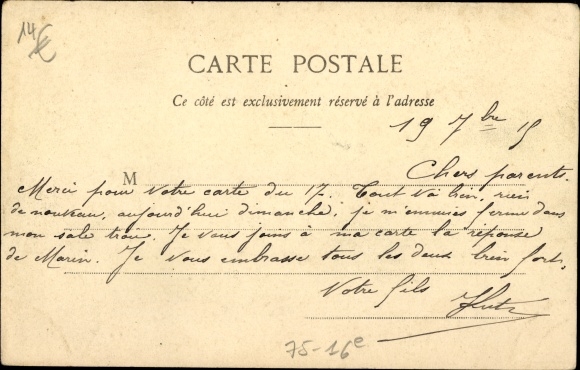 14€
CARTE POSTALE
Ce côté est exclusivement réservé à l'adresse
19 7bre 15
Chers parents.
M
Merci pour votre carte du 17. Tout va bien, rien
de nouveau, aujourd'hui dimanche, je m'ennuies ferme dans
mon sale trou. Je vous joins à ma carte la réponse
de Marin. Je vous embrasse tous les deux bien fort.
Votre fils
75-16e